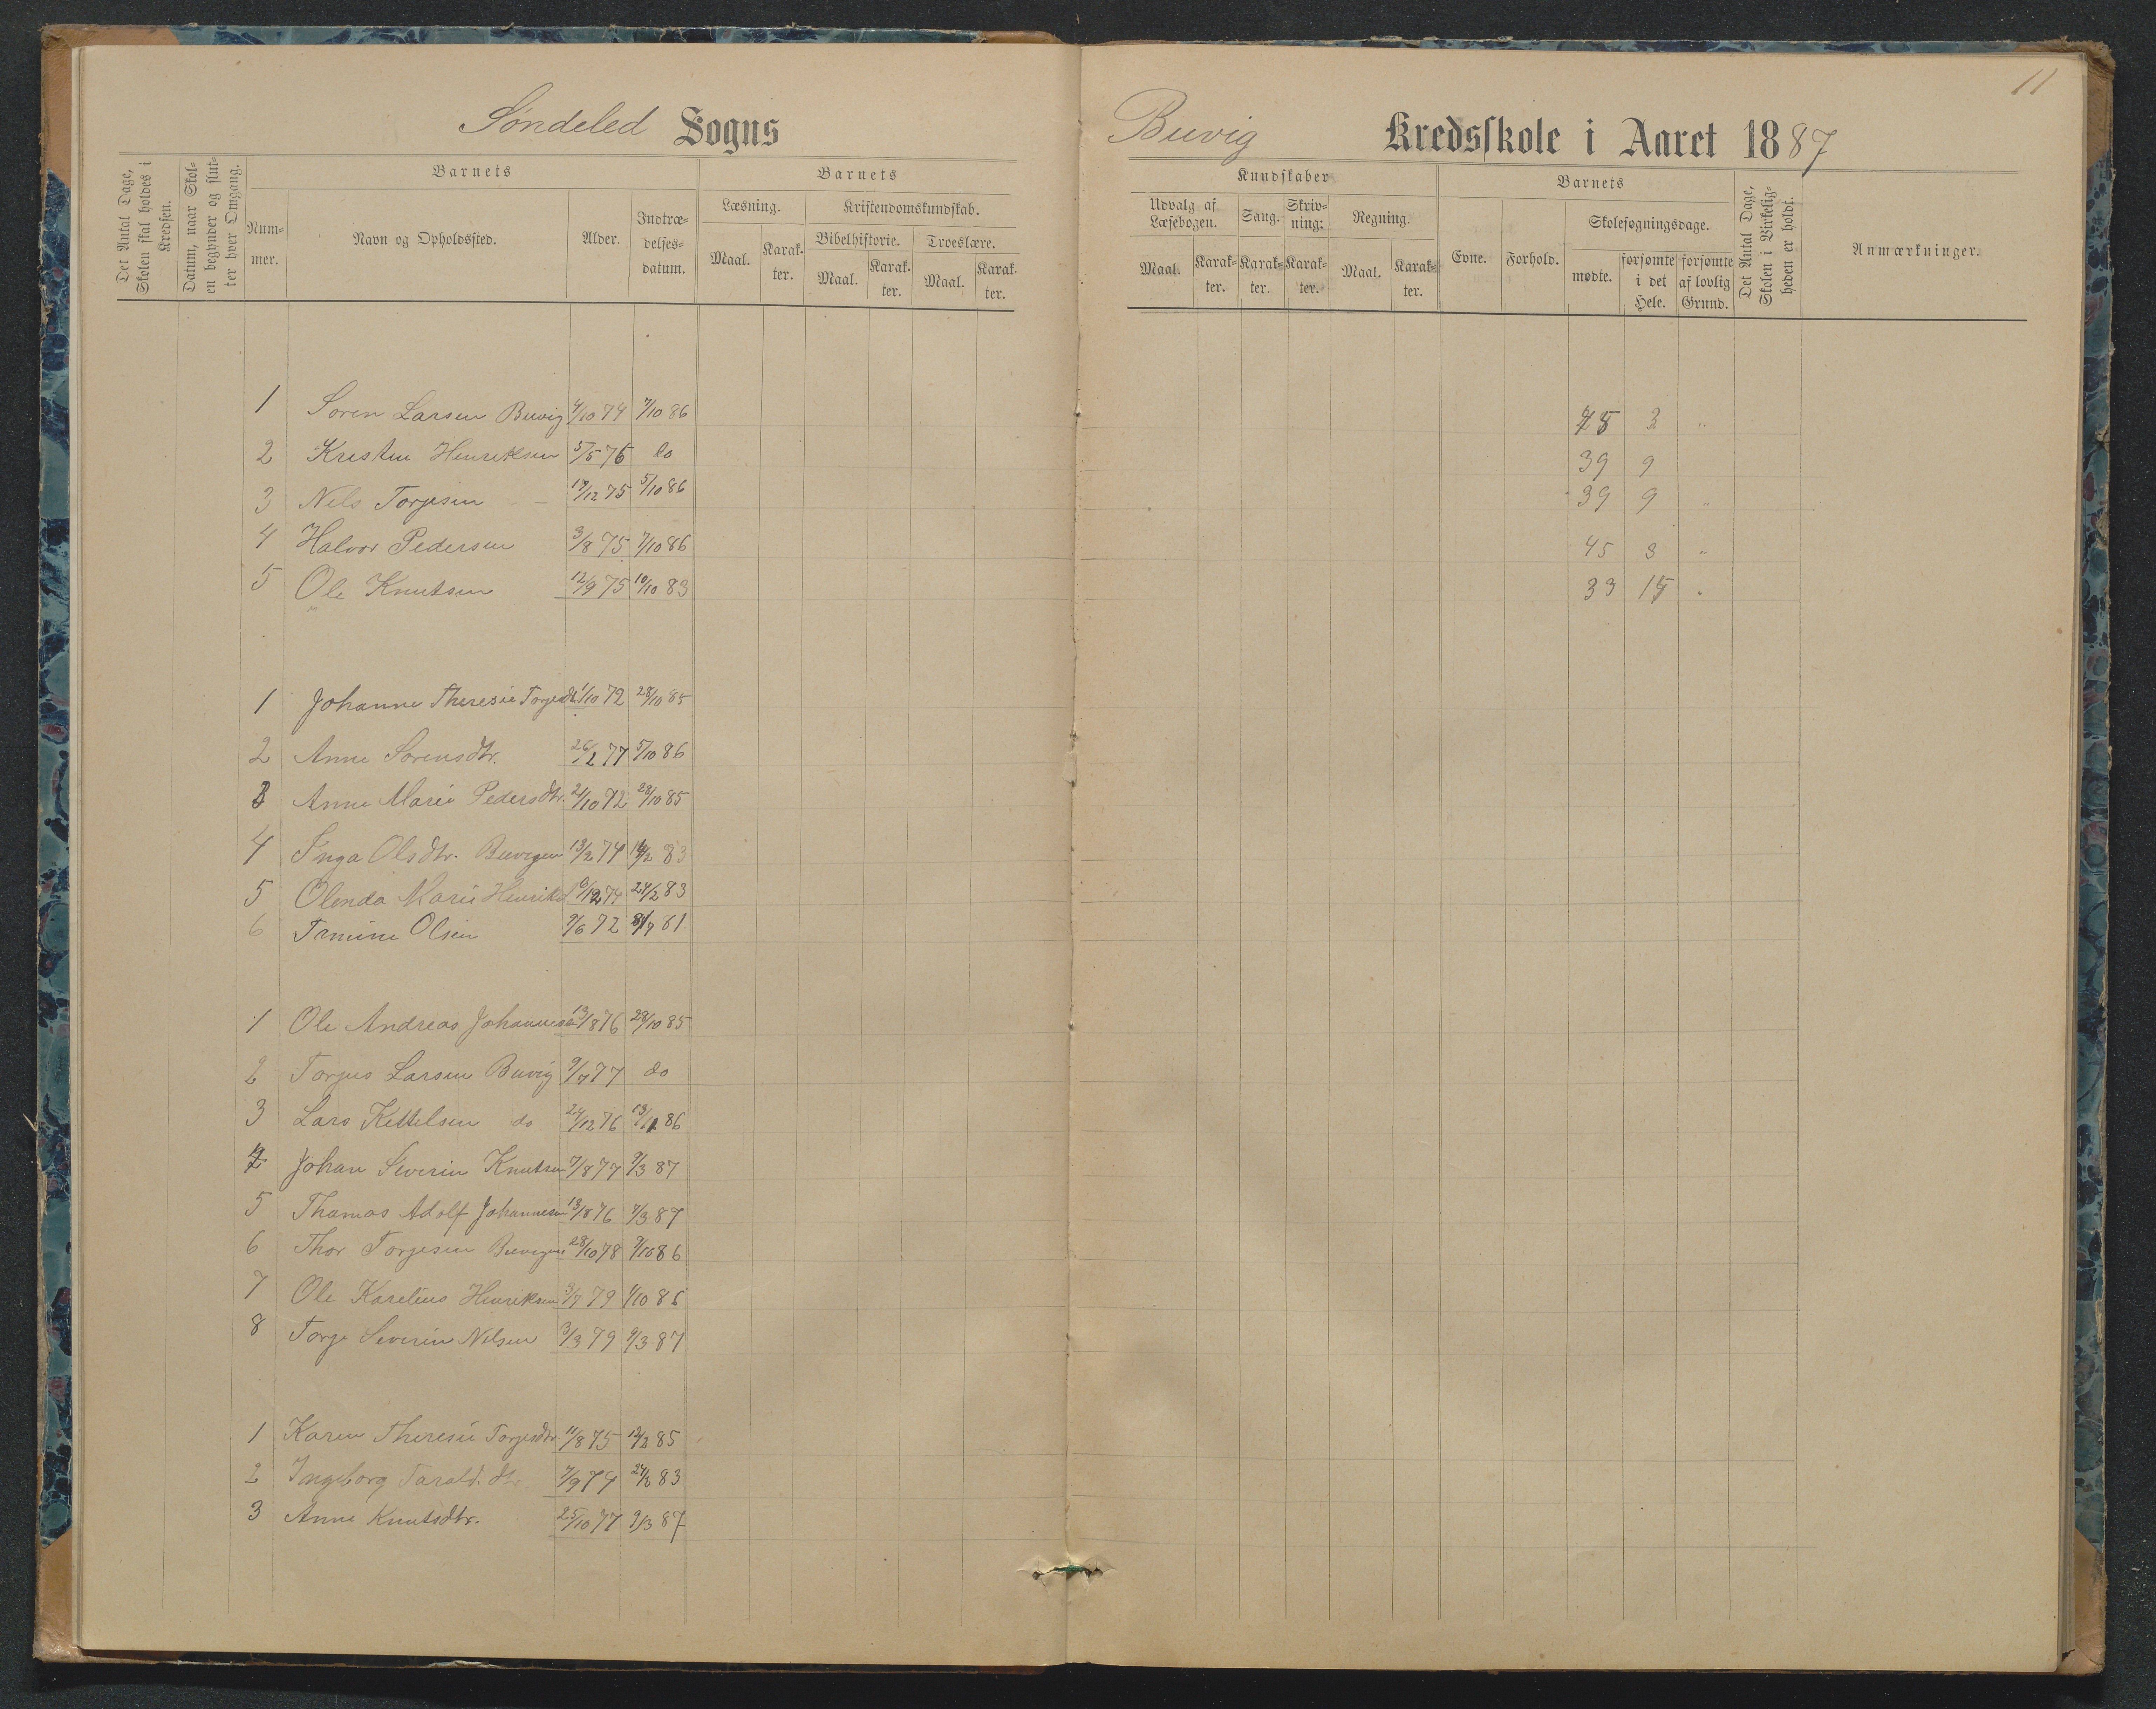 11
Søndeled Sogns
Buvig Kredsskole i Aaret 1887
Det Antal Dage, Skolen skal holdes i Kredsen.
Datum, naar Skolen begynder og slutter hver Omgang.
Barnets
Nummer.
Navn og Opholdssted.
Alder.
Indtrædelsesdatum.
Barnets
Læsning.
Maal. Karakter.
Kristendomskundskab.
Bibelhistorie.
Maal. Karakter.
Troeslære.
Maal. Karakter.
Kundskaber
Udvalg af Læsebogen.
Maal. Karakter.
Sang.
Karakter.
Skrivning.
Karakter.
Regning.
Maal. Karakter.
Barnets
Evne.
Forhold.
Skolesøgningsdage.
mødte.
forsømte i det Hele.
forsømte af lovlig Grund.
Det Antal Dage, Skolen i Virkeligheden er holdt.
Anmærkninger.
1 Søren Larsen Buvig 4/10 74 7/10 86 45 3 "
2 Kristen Henriksen 5/5 76 do 39 9
3 Nels Torjesen - - 19/12 75 5/10 86 39 9 "
4 Halvor Pedersen 3/8 75 7/10 86 45 3 "
5 Ole Knutsen 12/9 75 10/10 83 33 15 "
1 Johanne Theresie Torjesdtr. 1/10 72 28/10 85
2 Anne Sørensdtr. 26/2 77 5/10 86
3 Anne Marie Pedersdtr. 21/10 72 28/10 85
4 Inga Olsdtr. Buvigen 13/2 74 83
5 Olenda Marie 74 24/2 83
6 Olsen 9/6 72 81
1 Ole Andreas Johannesen 13/8 76 28/10 85
2 Torjus Larsen Buvig 9/7 77 do
3 Lars Kettelsen do 24/12 76 13/11 86
4 Johan Severin Knutsen 7/8 77 9/3 87
5 Thomas Adolf Johannesen 13/8 76 9/3 87
6 Thor Torjesen Buvigen 28/10 78 9/10 86
7 Ole Karelius Henriksen 3/7 79 1/10 86
8 Torje Severin Nilsen 3/3 79 9/3 87
1 Karen Theresie Torjesdtr. 11/8 75 12/2 85
2 Ingeborg Tarald.dtr. 7/9 74 24/2 83
3 Anne Knutsdtr. 25/10 77 9/3 87